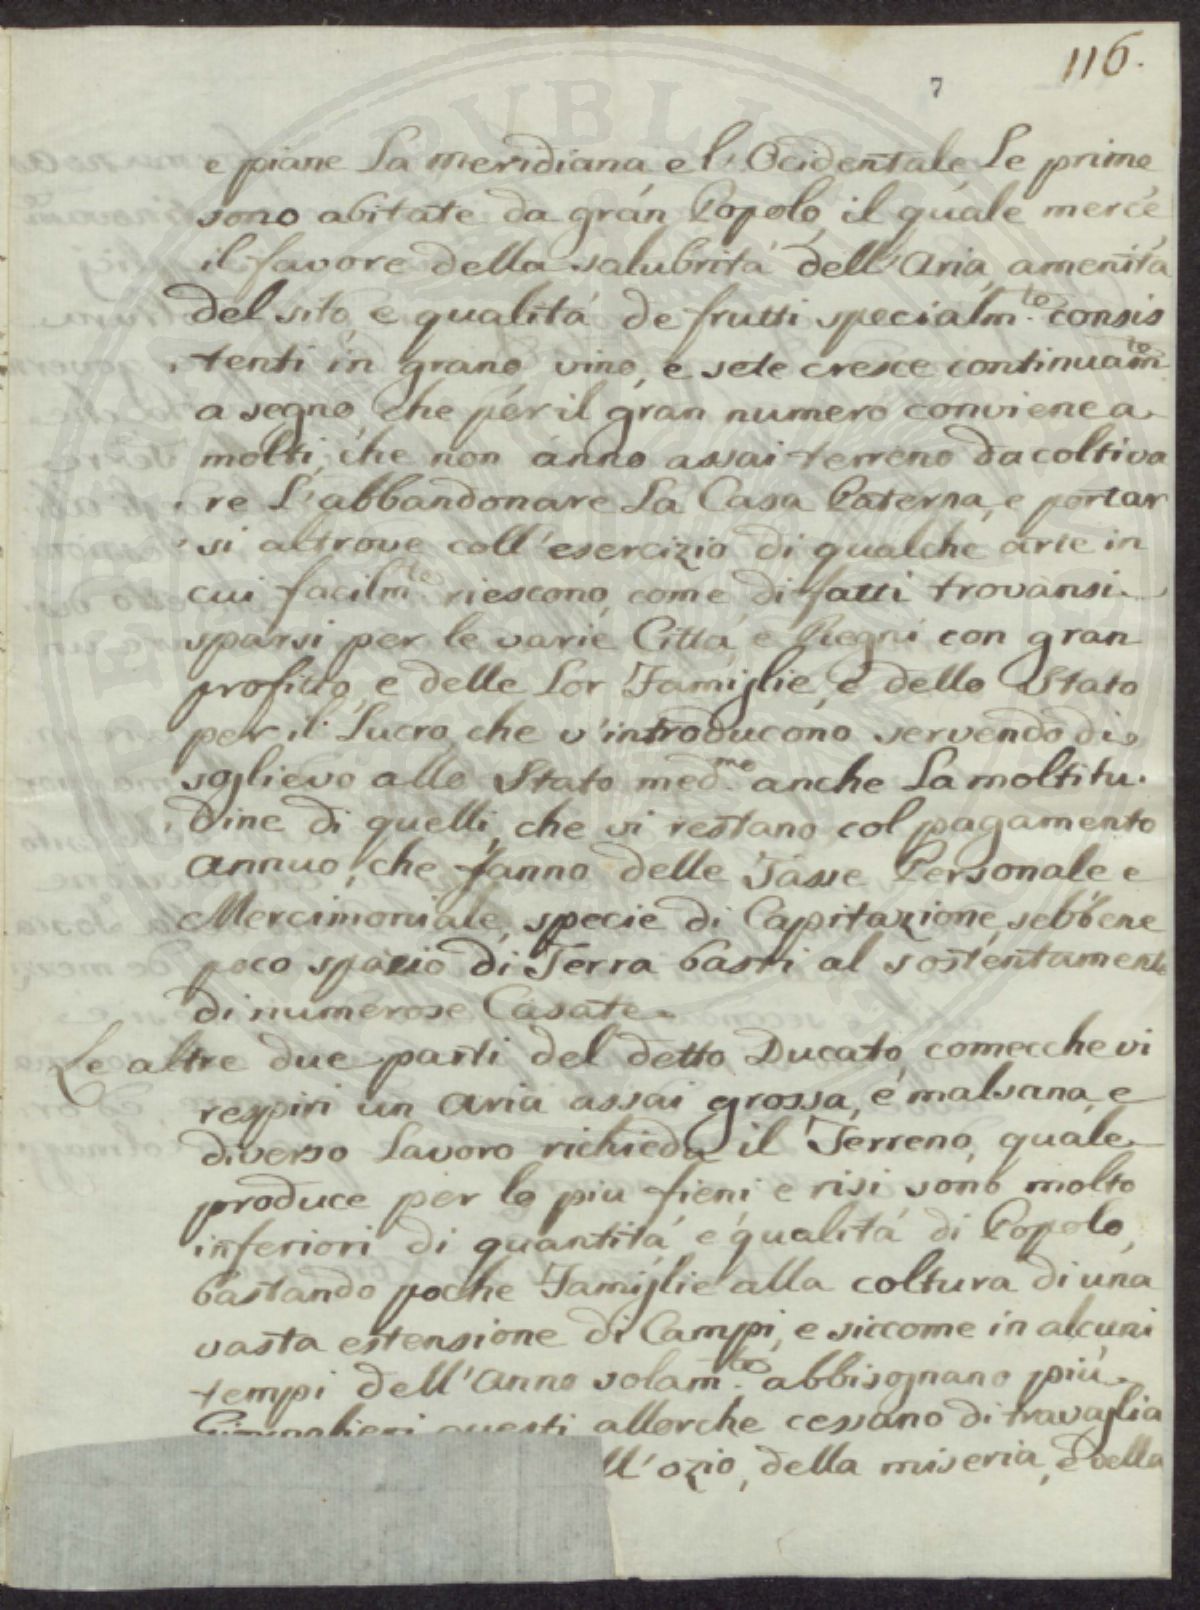 116.
7
e piane La meridiana e l'Ocidentale Le prime
sono abitate da gran Popolo, il quale mercè
il favore della salubrità dell'Aria, amenità
del sito, e qualità de frutti specialm.te consis
tenti in grano, vino, e sete cresce continuam.te
a segno, che per il gran numero conviene a
molti, che non anno assai terreno da coltiva
re L'abbandonare La Casa Paterna, e portar
si altrove coll'esercizio di qualche arte in
cui facilm.te riescono, come di fatti trovansi
sparsi per le varie Città, e Regni con gran
profitto, e delle Lor Famiglie, e dello Stato
per il Lucro, che v'introducono servendo di
soglievo allo Stato med.mo anche La moltitu.
dine di quelli, che vi restano col pagamento
annuo, che fanno delle Tasse Personale e
Mercimoniale, specie di Capitazione, sebbene
poco spazio di Terra basti al sostentamento
di numerose Casate.
Le altre due parti del detto Ducato, comecche vi
respiri un Aria assai grossa, e malsana, e
diverso Lavoro richieda il Terreno, quale
produce per lo piu fieni e risi sono molto
inferiori di quantità, e qualità di Popolo,
bastando poche Famiglie alla coltura di una
vasta estensione di Campi, e siccome in alcuni
tempi dell'Anno solam.te abbisognano più
questi allorche cessano di travaglia
ll'ozio, della miseria, e della